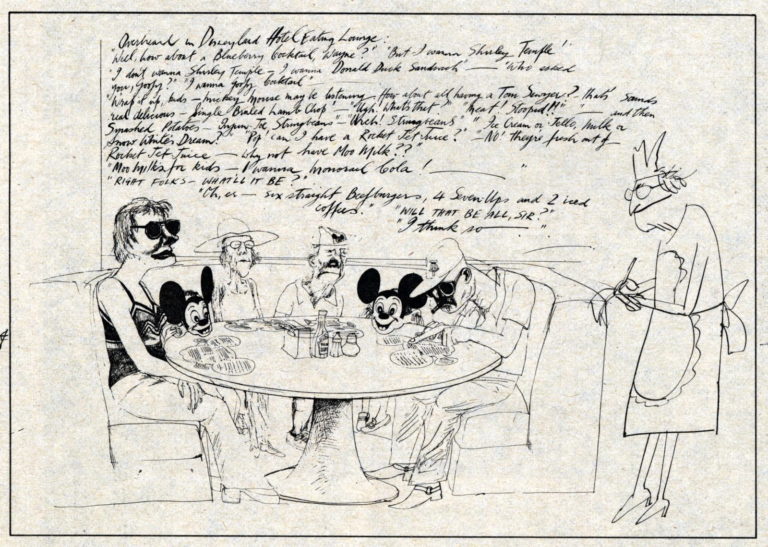 Overheard in Disneyland Hotel Eating Lounge:
"Well, how about a Blueberry Cocktail, Wayne?" "But I wanna Shirley Temple!"
"I don't wanna Shirley Temple – I wanna Donald Duck Sandwich" – "Who asked
you, Goofy?" "I wanna Goofy Cocktail"
"Wrap it up, kids – Mickey Mouse may be listening. How about all having a Tom Sawyer? that's sounds
real delicious – Single Broiled Lamb Chop" – "Ugh! Whats that" "Meat! Stoopid!!" "and then
Smashed Potatoes – Injun Joe, Stringbeans" – "Wech! Stringbeans" "Ice Cream or Jello, Milk or
Snow Winter Dream?" "Pop' can I have a Rocket Jet Juice?" – "NO! they're fresh out of
Rocket Jet Juice – why not have Moo Milk??"
"Moo Milks for kids – I wanna Monorail Cola! –
"RIGHT FOLKS – WHAT'LL IT BE?"
"Oh, er – six straight Beefburgers, 4 Seven Ups and 2 iced
coffees." "WILL THAT BE ALL, SIR?"
"I think so – "